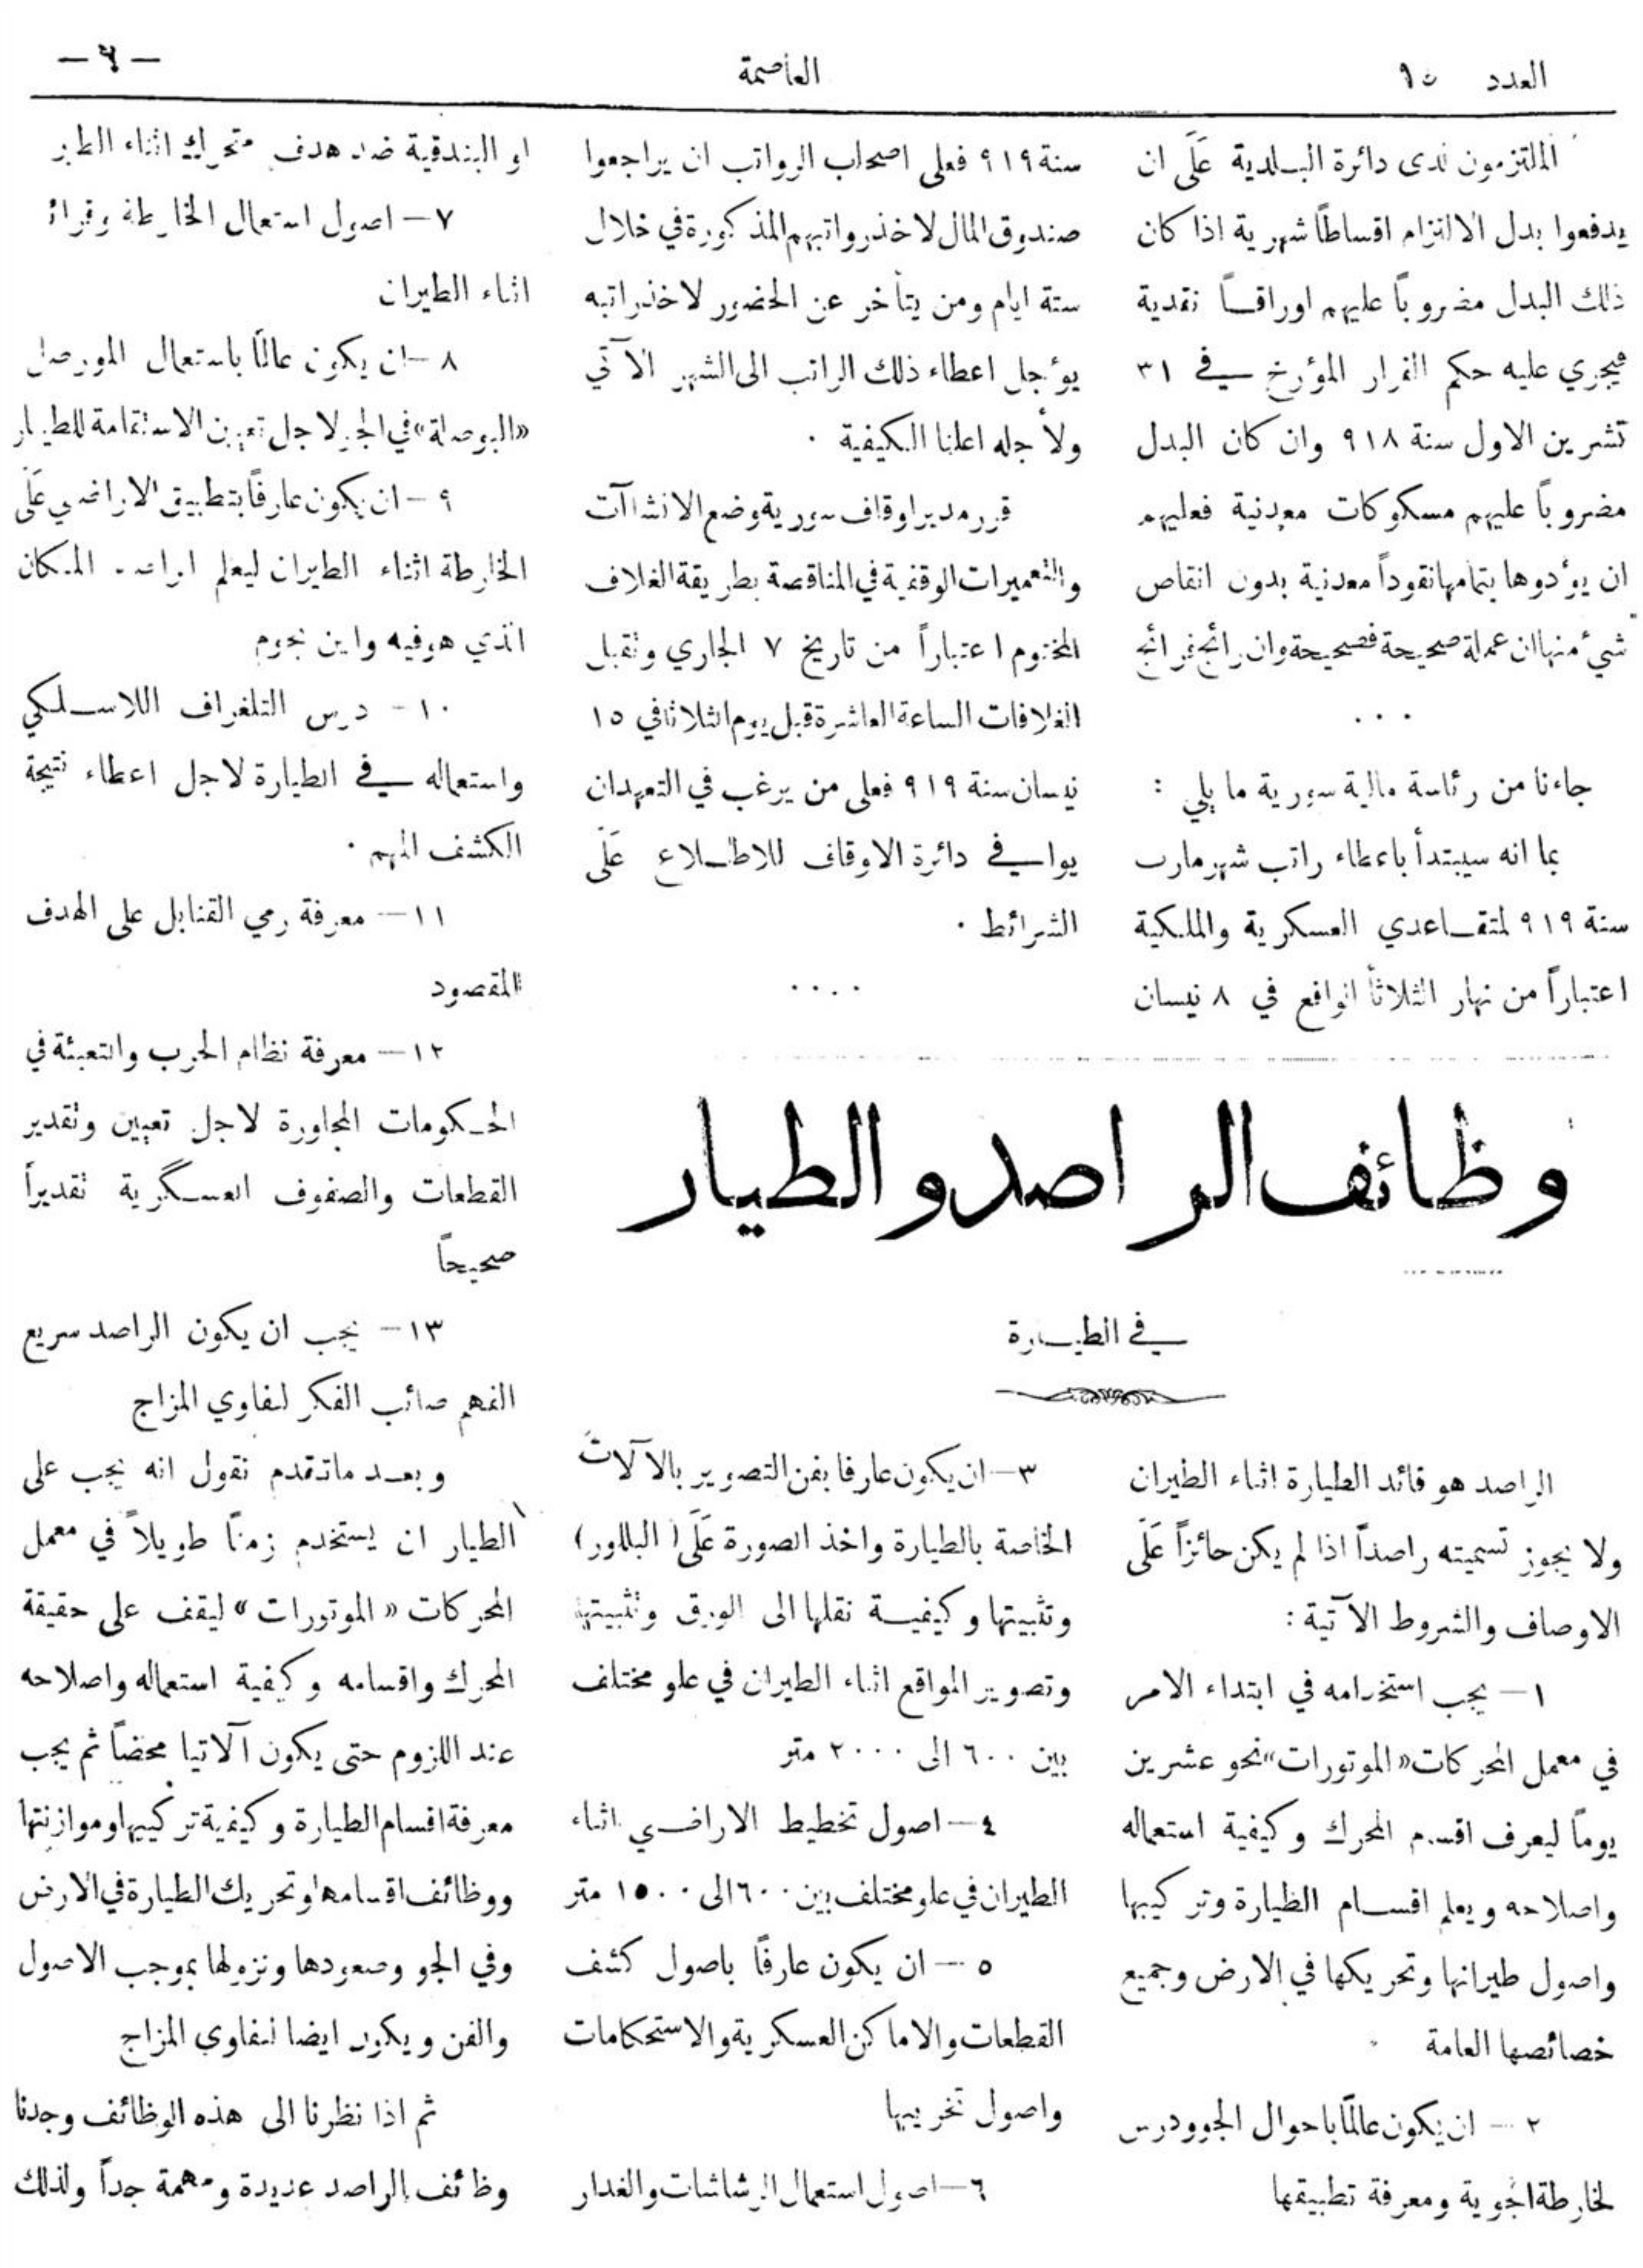 العدد ١٥
العاصمة
— ٦ —
الملتزمون لدى دائرة البلدية عَلَى ان
يدفعوا بدل الالتزام اقساطاً شهرية اذا كان
ذلك البدل مضروباً عليهم اوراقاً نقدية
فيجري عليه حكم القرار المؤرخ في ٣١
تشرين الاول سنة ٩١٨ وان كان البدل
مضروباً عليهم مسكوكات معدنية فعليهم
ان يؤدوها بتمامها نقوداً معدنية بدون انقاص
شيء منها ان عملة صحيحة فصحيحة وان رائج فرائج
٠٠٠
جاءنا من رئاسة مالية سورية ما يلي :
بما انه سيبتدأ باعطاء راتب شهر مارت
سنة ٩١٩ لمتقاعدي العسكرية والملكية
اعتباراً من نهار الثلاثا الواقع في ٨ نيسان
سنة ٩١٩ فعلى اصحاب الرواتب ان يراجعوا
صندوق المال لاخذ رواتبهم المذكورة في خلال
ستة ايام ومن يتأخر عن الحضور لاخذ راتبه
يؤجل اعطاء ذلك الراتب الى الشهر الآتي
ولأجله اعلنا الكيفية ٠
قرر مدير اوقاف سورية وضع الانشاآت
والتعميرات الوقفية في المناقصة بطريقة الغلاف
المختوم اعتباراً من تاريخ ٧ الجاري وتقبل
الغلافات الساعة العاشرة قبل يوم الثلاثا في ١٥
نيسان سنة ٩١٩ فعلى من يرغب في التعهد ان
يوافي دائرة الاوقاف للاطلاع عَلَى
الشرائط ٠
٠٠٠٠
وظائف الراصد والطيار
في الطيارة
الراصد هو قائد الطيارة اثناء الطيران
ولا يجوز تسميته راصداً اذا لم يكن حائزاً عَلَى
الاوصاف والشروط الآتية :
١ — يجب استخدامه في ابتداء الامر
في معمل المحركات «الموتورات» نحو عشرين
يوماً ليعرف اقسام المحرك وكيفية استعماله
واصلاحه ويعلم اقسام الطيارة وتركيبها
واصول طيرانها وتحريكها في الارض وجميع
خصائصها العامة
٢ — ان يكون عالماً باحوال الجو ودرس
لخارطة الجوية ومعرفة تطبيقها
٣ — ان يكون عارفا بفن التصوير بالآلات
الخاصة بالطيارة واخذ الصورة عَلَى (البللور)
وتثبيتها وكيفية نقلها الى الورق وتثبيتها
وتصوير المواقع اثناء الطيران في علو مختلف
بين ٦٠٠ الى ٢٠٠٠ متر
٤ — اصول تخطيط الاراضي اثناء
الطيران في علو مختلف بين ٦٠٠ الى ١٥٠٠ متر
٥ — ان يكون عارفاً باصول كشف
القطعات والاماكن العسكرية والاستحكامات
واصول تخريبها
٦ — اصول استعمال الرشاشات والغدار
او البندقية ضد هدف متحرك اثناء الطير
٧ — اصول استعمال الخارطة
اثناء الطيران
٨ — ان يكون عالماً باستعمال
«البوصلة» في الجو لاجل تعيين الاستقامة للطيار
٩ — ان يكون عارفاً بتطبيق الاراضي عَلَى
الخارطة اثناء الطيران ليعلم الراصد المكان
الذي هو فيه واين يحوم
١٠ — درس التلغراف اللاسلكي
واستعماله في الطيارة لاجل اعطاء نتيجة
الكشف المهم ٠
١١ — معرفة رمي القنابل على الهدف
المقصود
١٢ — معرفة نظام الحرب والتعبئة في
الحكومات المجاورة لاجل تعيين وتقدير
القطعات والصفوف العسكرية تقديراً
صحيحاً
١٣ — يجب ان يكون الراصد سريع
الفهم صائب الفكر لنفاوي المزاج
وبعد ما تقدم نقول انه يجب على
الطيار ان يستخدم زمناً طويلاً في معمل
المحركات «الموتورات» ليقف على حقيقة
المحرك واقسامه وكيفية استعماله واصلاحه
عند اللزوم حتى يكون آلاتيا محضاً ثم يجب
معرفة اقسام الطيارة وكيفية تركيبها وموازنتها
ووظائف اقسامها وتحريك الطيارة في الارض
وفي الجو وصعودها ونزولها بموجب الاصول
والفن ويكون ايضا لنفاوي المزاج
ثم اذا نظرنا الى هذه الوظائف وجدنا
وظائف الراصد عديدة ومهمة جداً ولذلك